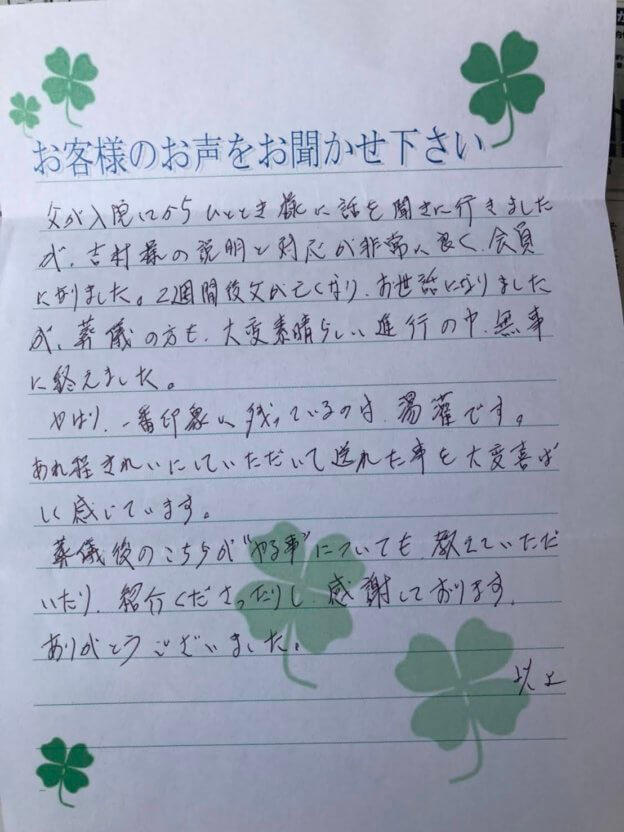 お客様のお声をお聞かせ下さい
父が入院してからひととき様に話を聞きに行きました
が、吉村様の説明と対応が非常に良く、会員
になりました。2週間後父が亡くなり、お世話になりました
が、葬儀の方も、大変素晴らしい進行の中、無事
に終えました。
やはり、一番印象に残っているのは、湯灌です。
あれ程きれいにしていただいて送れた事を大変喜ば
しく感じています。
葬儀後のこちらが"やる事"についても、教えていただ
いたり、紹介くださったりし、感謝しております。
ありがとうございました。
以上